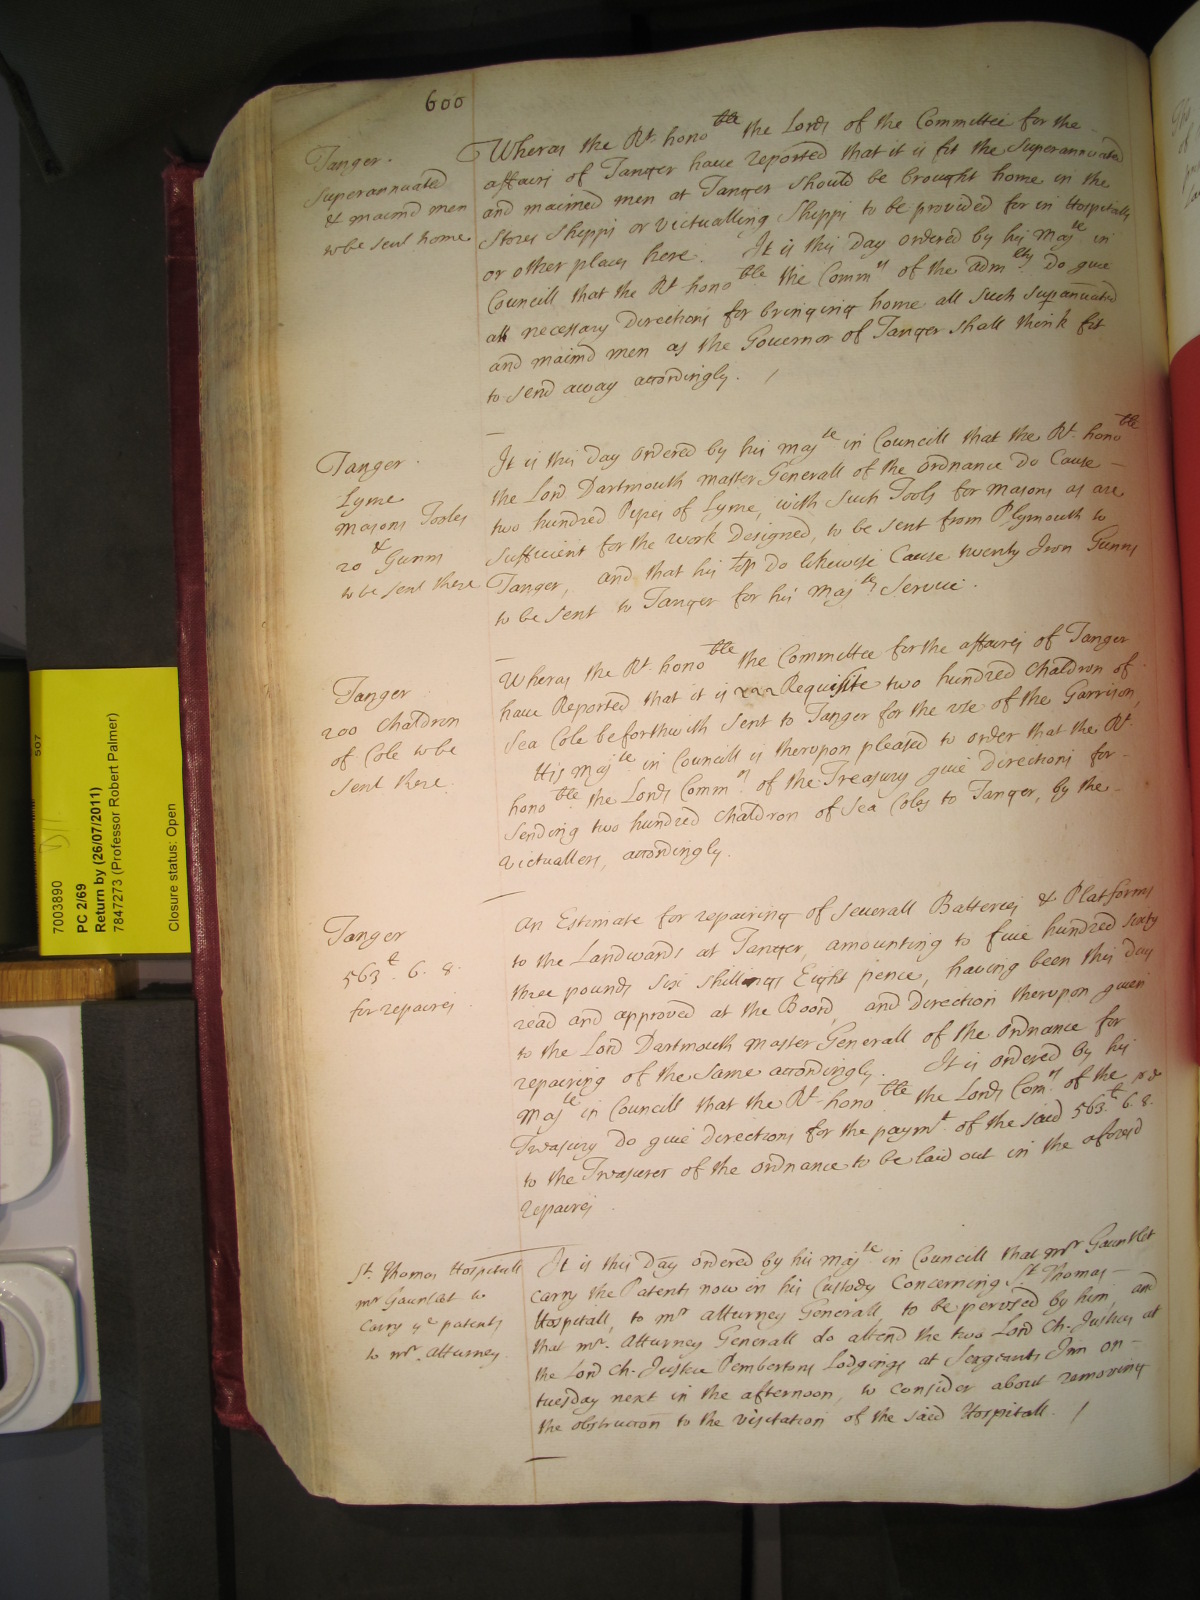 600
Tanger.
superannuated
& maimd men
to be sent home
Wheras the Rt. honoble the Lords of the Committee for the
affairs of Tanger have reported that it is fit the Superannuated
and maimed men at Tanger should be brought home in the
stores shipps or victualling Shipps to be provided for in Hospitalls
or other places here. It is this Day ordered by his Majte in
Councill that the Rt. honoble the Commrs of the Admlty. Do give
all necessary Directions for bringing home all such supannuated
and maimd men as the Governor of Tanger shall think fit
to send away accordingly. /
Tanger.
Lyme
Masons Tooles
&
20 Gunns
to be sent there
It is this Day ordered by his Majte in Councill that the Rt. honoble
the Lord Dartmouth Master Generall of the ordnance Do Cause
two hundred Pipes of Lyme, with such Tools for Masons as are
sufficient for the work Designed, to be sent from Plymouth to
Tanger, and that his Lop Do likewise Cause twenty Iron Gunns
to be sent to Tanger for his Majtes Service.
Tanger
200 Chaldron
of Cole to be
sent there
Wheras the Rt. honoble the Committee for the affaires of Tanger
have Reported that it is Requisite two hundred Chaldron of
Sea Cole beforthwith sent to Tanger for the use of the Garrison,
His Majte in Councill is therupon pleased to order that the Rt.
honoble the Lords Commrs of the Treasury give directions for
sending two hundred Chaldron of Sea Coles to Tanger, by the
victuallers, accordingly.
Tanger
563£. 6. 8.
for repaires
An Estimate for repairing of severall Batteries & Platforms
to the Landwards at Tanger, amounting to five hundred sixty
three pounds six shillings Eight pence, having been this day
read and approved at the Board, and direction therupon given
to the Lord Dartmouth Master Generall of the ordnance for
repairing of the same accordingly. It is ordered by his
Majte in Councill that the Rt. honoble the Lords Comrs of the
Treasury do give directions for the paymt. of the said 563£. 6. 8.
to the Treasurer of the ordnance to be laid out in the aforesd
repaires
St. Thomas Hospitall
mr Gauntlet to
carry ye patents
to mr. Atturney
It is this Day ordered by his Majte in Councill that mr Gauntlet
carry the Patents now in his Custody Concerning St Thomas
Hospitall, to mr Atturney Generall, to be perused by him, and
that mr. Atturney Generall do attend the two Lord Ch. Justices at
the Lord Ch. Justice Pembertons Lodgings at Sergeants Inn on
tuesday next in the afternoon, to consider about removing
the obstruction to the visitation of the said Hospitall. /
7003890
PC 2/69
Return by (26/07/2011)
7847273 (Professor Robert Palmer)
Closure status: Open
507